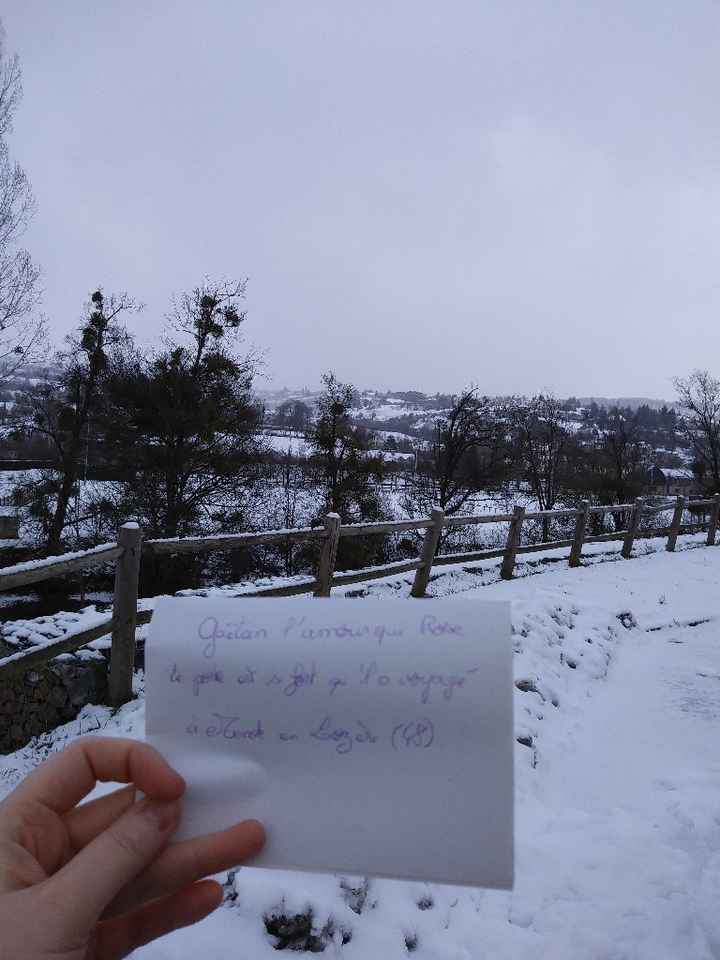 Gaëtan l'amour que Rose
te porte est si fort qu'il a voyagé
à Mende en Lozère (48)